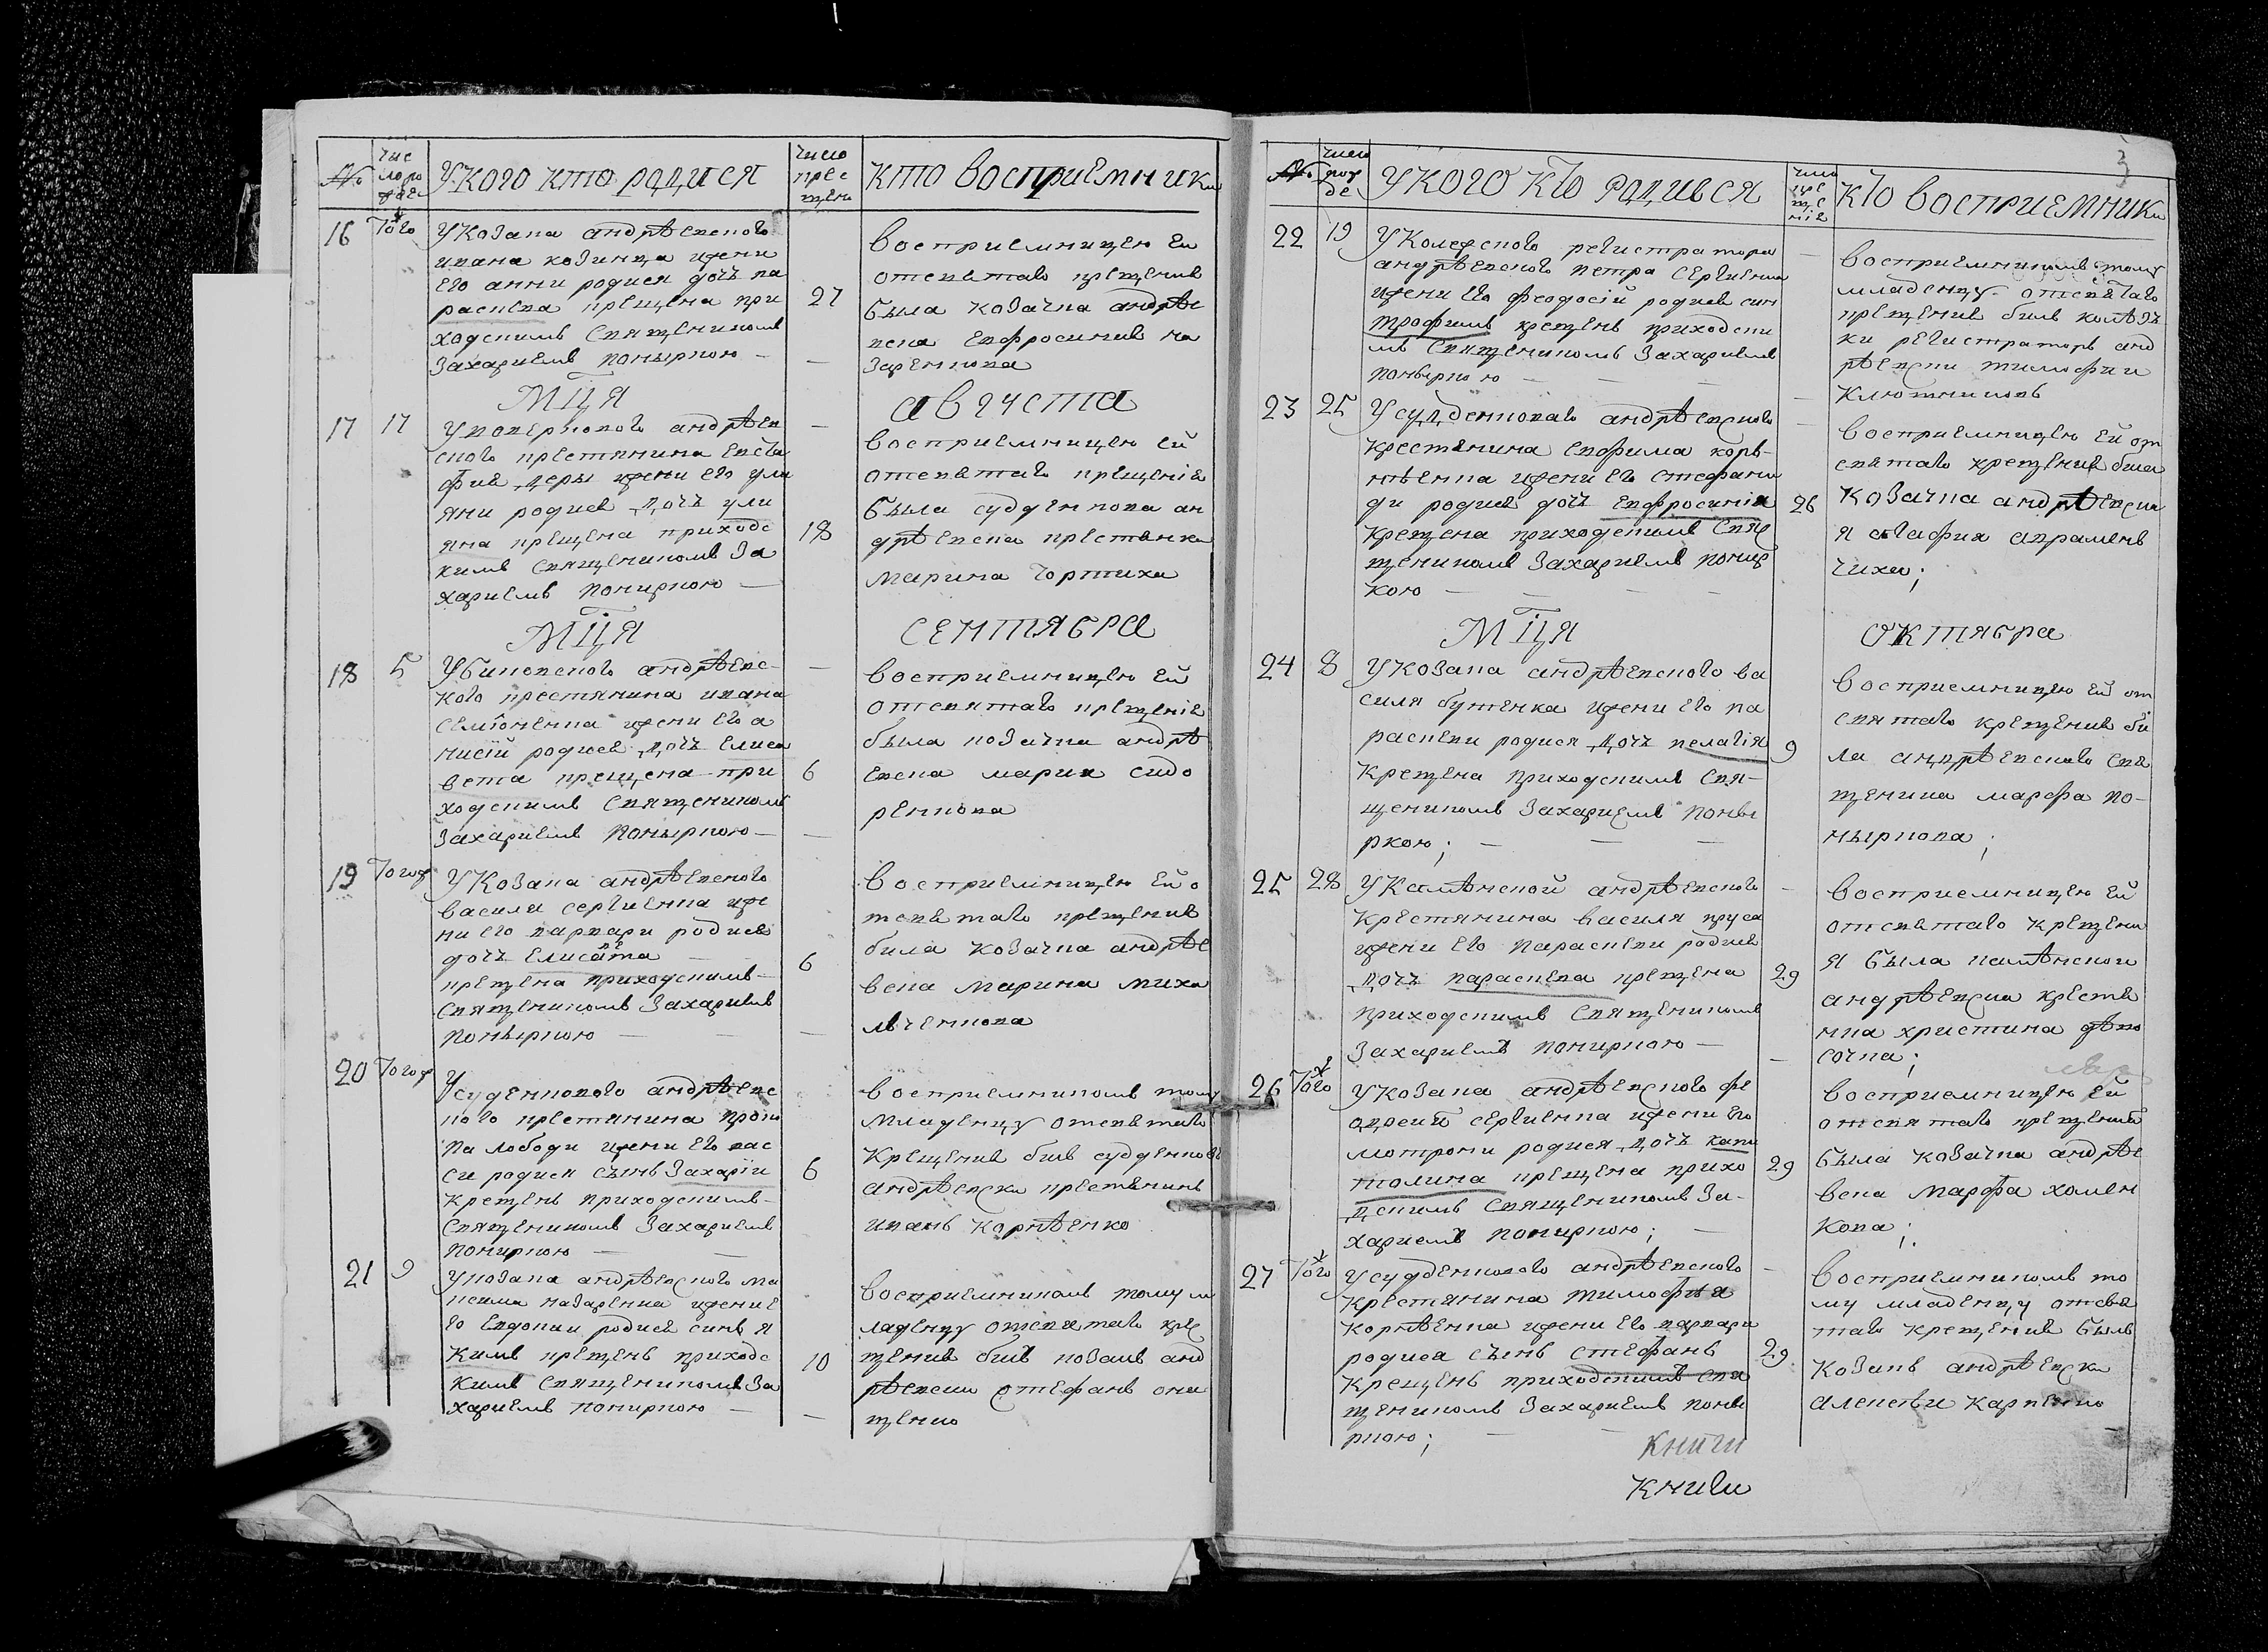 №
Чис
ло ро
жде
У кого кто родися
Число
крес
щен
кто восприемники
16 Тогож
У козака андрѣевского
ивана козинца жени
его анни родися дочь па
раскева крещена при
27
ходскимъ священникомъ
Захариемъ Поныркою —
восприемницею ей
отсвятаго крещения
была козачка андрѣе
вска евфросиния на
заренкова
МЦА
августа
17 17
У андрѣев
ского крестянина евста
фия жени его ули
яни родися дочь ули
яна крещена приходс
18
кимъ священникомъ За
хариемъ Пониркою —
восприемницею ей
отсвятаго крещенія
была судденкова ан
дрѣевска крестянка
марина Чортиха
МЦА
сентября
18 5
У биковского андрѣевс-
кого крестянина ивана
семіоненка жени его а
нисій родися дочь елиса
вета крещена при
6
ходскимъ священникомъ
Захариемъ Поныркою —
восприемницею ей
отсвятаго крещенія
была козачка андрѣ
евска мария сидо
ренкова
19 Тогож
У козака андрѣевского
василя сергиенка же
ни его варвари родися
дочь Елисавета
6
крещена приходскимъ
священникомъ Захариемъ
Поныркою —
восприемницею ей о
тсвятаго крещения
била козачка андрѣе
вска марина миха
лченкова
20 Тогож
У суденкового андрѣевс
кого крестянина проко
па лободи жени его вас
си родися сынъ Захарій
6
крещенъ приходскимъ
священникомъ Захариемъ
Пониркою —
восприемникомъ тому
младенцу отсвятаго
крещения билъ судденковъ
андрѣевски крестянинъ
иванъ корнѣенко
21 9
У козака андрѣевского ма
ксима назаренка жени е
го евдокии родися синъ я
кимъ крещенъ приходс
10
кимъ священникомъ За
хариемъ Пониркою —
восприемникомъ тому м
ладенцу отсвятаго кре
щения билъ козакъ анд
рѣевски стефанъ они
щенко
3
№
число
рож
де
У кого кто родився
число
кре
ще
нія
кто восприемники
22 19
У колежского регистратора
андрѣевского петра сергиенка
жени его феодосій родися син
трофимъ крещенъ приходски
мъ священникомъ Захариемъ
Поныркою —
восприемникомъ тому
младенцу отсвятаго
крещения билъ колѣзъ
ки регистраторъ анд
рѣевски тимофии
ключниковъ
23 25
У судденковаго андрѣевского
крестянина евфима корь-
нѣенка жени его стефани
ди родися дочь евфросинія
26
крещена приходскимъ свяс
щеникомъ Захариемъ Понир
кою —
восприемницею ей от
святаго крещения била
козачка андрѣевска
я агафия авраменъ
чиха;
МЦА
октября
24 8
У козака андрѣевского ва
силя бутенка жени его па
раскеви родися дочь пелагія
9
крещена приходскимъ свя-
щеникомъ Захариемъ Поны
ркою; —
восприемницею ей от
святаго крещения би
ла андрѣевскаго свя
щеника марфа по-
ныркова;
25 28
У андрѣевского
крестянина василя пруса
жени его параскеви родися
дочь параскева крещена
29
приходскимъ священникомъ
Захариемъ Пониркою —
восприемницею ей
отсвятаго крещени
я была
андрѣевска крестя
нка христина
сочка;
26 Тогож
У козака андрѣевского фе
одосій сергиенка жени его
мотрони родися дочь капи
толина крещена прихо
29
дскимъ священникомъ За-
хариемъ Пониркою; —
восприемницею ей
отсвятаго крещения
была козачка андрѣе
вска марфа хомен
кова;
27 Тогож
У судденкового андрѣевского
крестянина тимофѣя
корнѣенка жени его варвари
родися сынъ стефанъ
29
крещенъ приходскимъ свя
щеникомъ Захариемъ Поны
ркою; —
восприемникомъ то
му младенцу отсвя
таго крещения былъ
козакъ андрѣевски
алексѣи карпенко
книги
книги